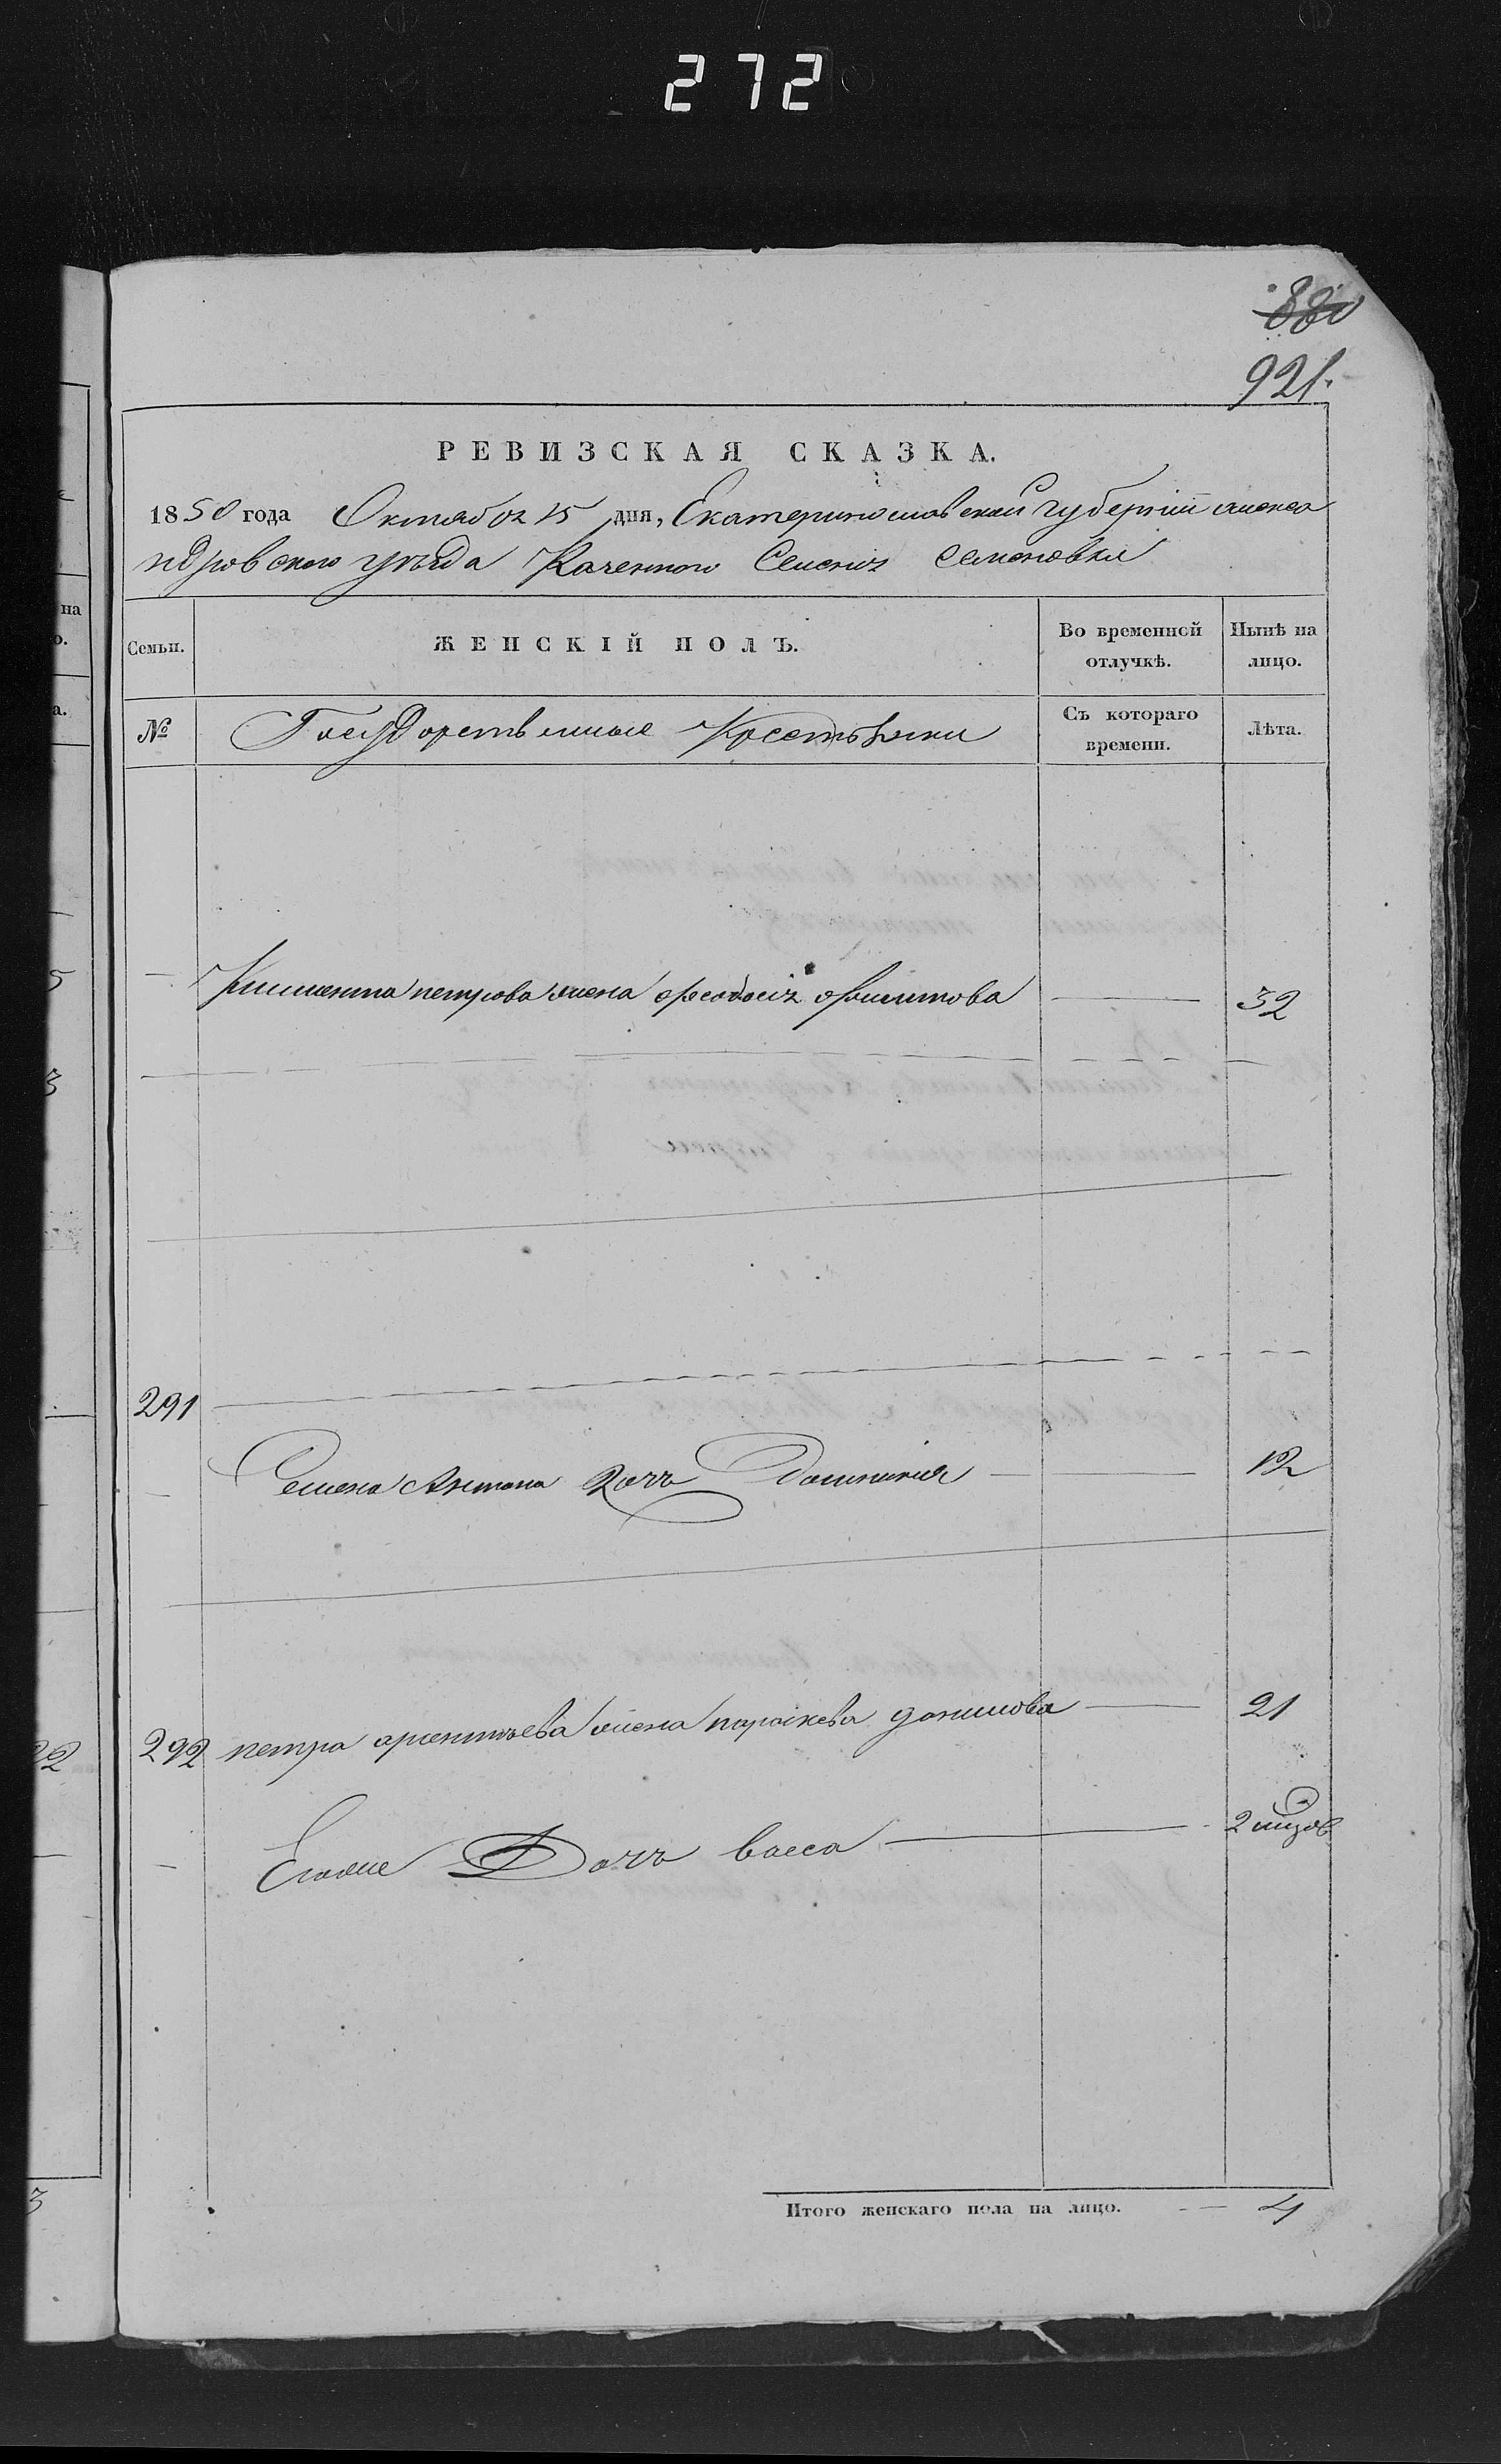 272
880
921.
РЕВИЗСКАЯ СКАЗКА.
1850 года Октября 15 дня, Екатеринославской Губернии алекса
ндровского уѣзда Казенного Селенія Семеновки
на
о.
Семьи. ЖЕНСКІЙ ПОЛЪ. Во временной отлучкѣ. Нынѣ на лицо.
а.
№ Государственные Крестьянки Съ котораго времени. Лѣта.
Климента петрова жена феодосія филипова 32
291
Семена Антона дочь Домникия 12
292 петра арентьева жена параскева данилова 21
22
Егоже Дочь васса 2 мѣсяцов
Итого женскаго пола на лицо. 4
3